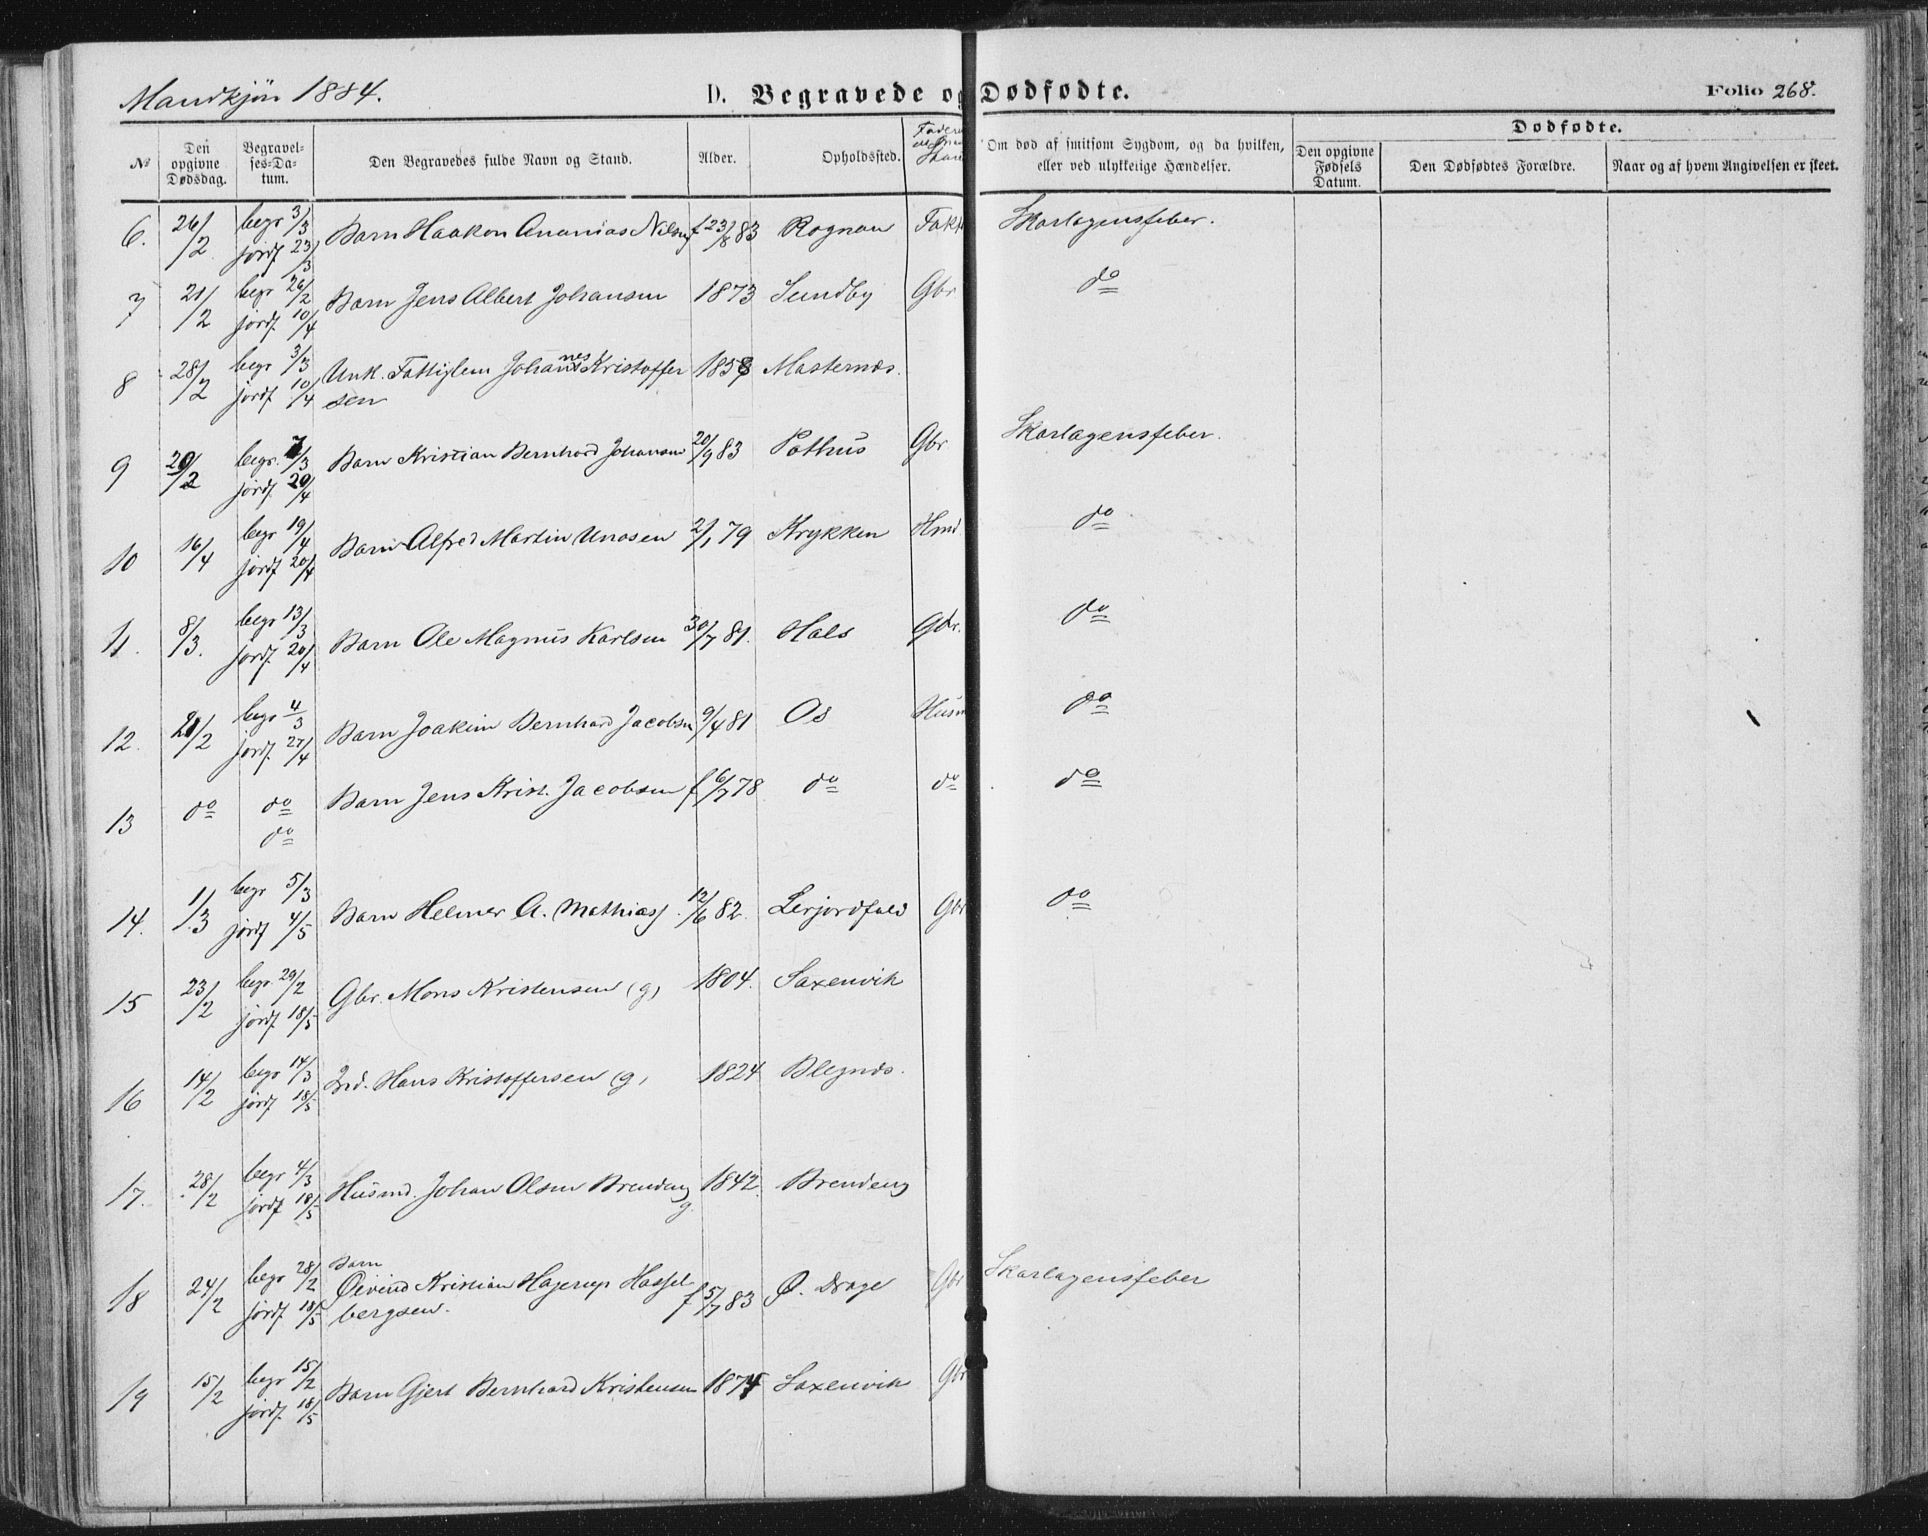 Mandkjön 1884.
D. Begravede og Dødfødte.
Folio 268.
No
Den opgivne Dødsdag.
Begravelses-Datum.
Den Begravedes fulde Navn og Stand.
Alder.
Opholdssted.
Om død af smitsom Sygdom, og da hvilken, eller ved ulykkelige Hændelser.
Dødfødte.
Den opgivne Fødsels Datum.
Den Dødfødtes Forældre.
Naar og af hvem Angivelsen er skeet.
6. 26/2 begr 3/3 jordf 23/3 Barn Haakon Ananias Nilsen f 23/8 83 Rognan Skarlagensfeber.
7 21/2 begr 26/2 jordf. 10/4 Barn Jens Albert Johansen 1873 Sundby Gbr do
8 28/2 begr 3/3 jordf 10/4 Unk. Fattiglem Johannes Kristoffer 1858 Masternæs.
sen
9 20/2 begr. 7/3 jordf. 20/4 Barn Kristian Bernhard Johansen 20/9 83 Pothus Gbr Skarlagensfeber.
10 16/4 begr 19/4 jordf 20/4 Barn Alfred Martin Unosen 2/1 79 Krykken Hmd do
11. 8/3. begr 13/3 jordf. 20/4 Barn Ole Magnus Karlsen 30/7 81. Hals Gbr. do
12. 21/2 begr 4/3 jordf. 27/4 Barn Joakim Bernhard Jacobsen 9/4 81 Os Husm do
13 do do do Barn Jens Krist. Jacobsen f 6/7 78 do do do
14. 1/3 begr 5/3 jordf 4/5 Barn Helmer A. Mathiass. 12/6 82. Lerjordfald Gbr do
15 23/2 begr 29/2 jordf 18/5 Gbr. Mons Kristensen (g) 1804. Saxenvik
16 14/2 begr 14/3 jordf 18/5 Ind. Hans Kristoffersen (g) 1824 Blegnæs.
17. 28/2 begr 4/3 jordf 18/5 Husmd. Johan Olsen Brendeng 1842. Brendeng
g.
Barn
18 24/2 begr 28/2 jordf 18/5 Øivind Kristian Hagerup Hassel f 5/7 83 Ø. Drage Gbr Skarlagensfeber
bergsen.
19 15/2 begr 15/2 jordf. 18/5 Barn Gjert Bernhard Kristensen 1874 Saxenvik Gbr